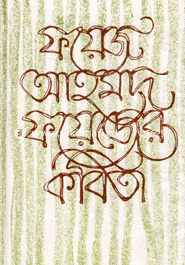 ফয়েজ
আহমাদ
ফায়েজের
কবিতা